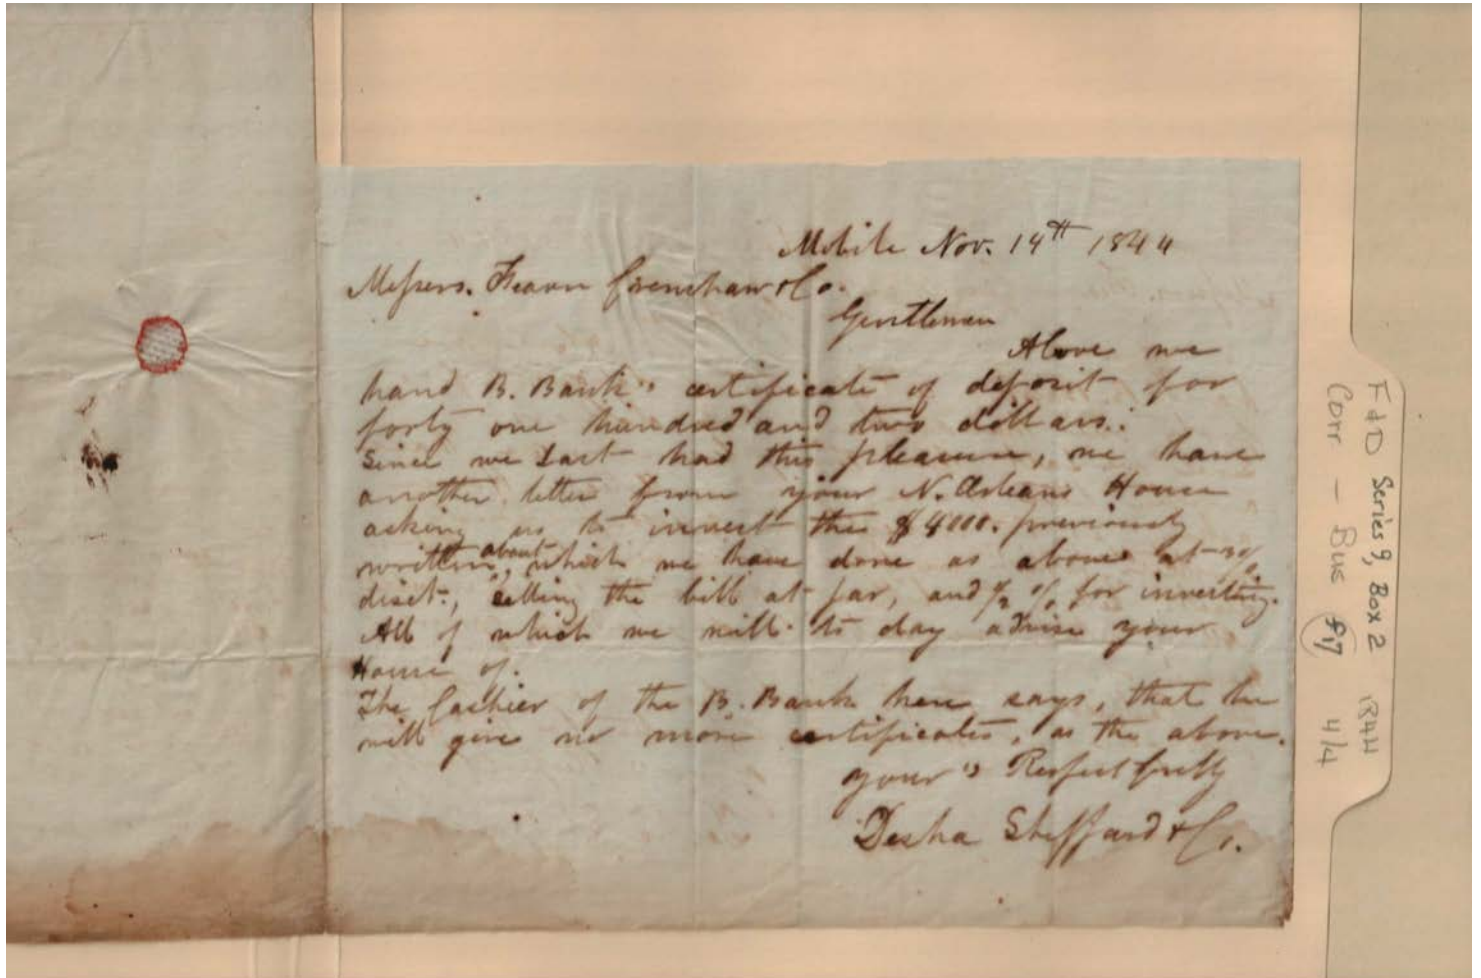 Mobile Nov. 14th 1844
Messers. Fearn Crenshaw & Co.
Gentlemen
Above we
hand B. Bank's certificate of deposit for
forty one hundred and two dollars.
Since we last had this pleasure, we have
another letter from your N. Orleans House
asking us to invest the $4000. previously
written about, which we have done as above at
disct., selling the bill at par, and ½ % for investing.
All of which we will to day advise your
House of.
The Cashier of the B. Bank here says, that he
will give no more certificates, as the above.
your's Respectfully
Desha Sheppard & Co.
F&D Series 9, Box 2 1844
Corr - Bus f17 4/4